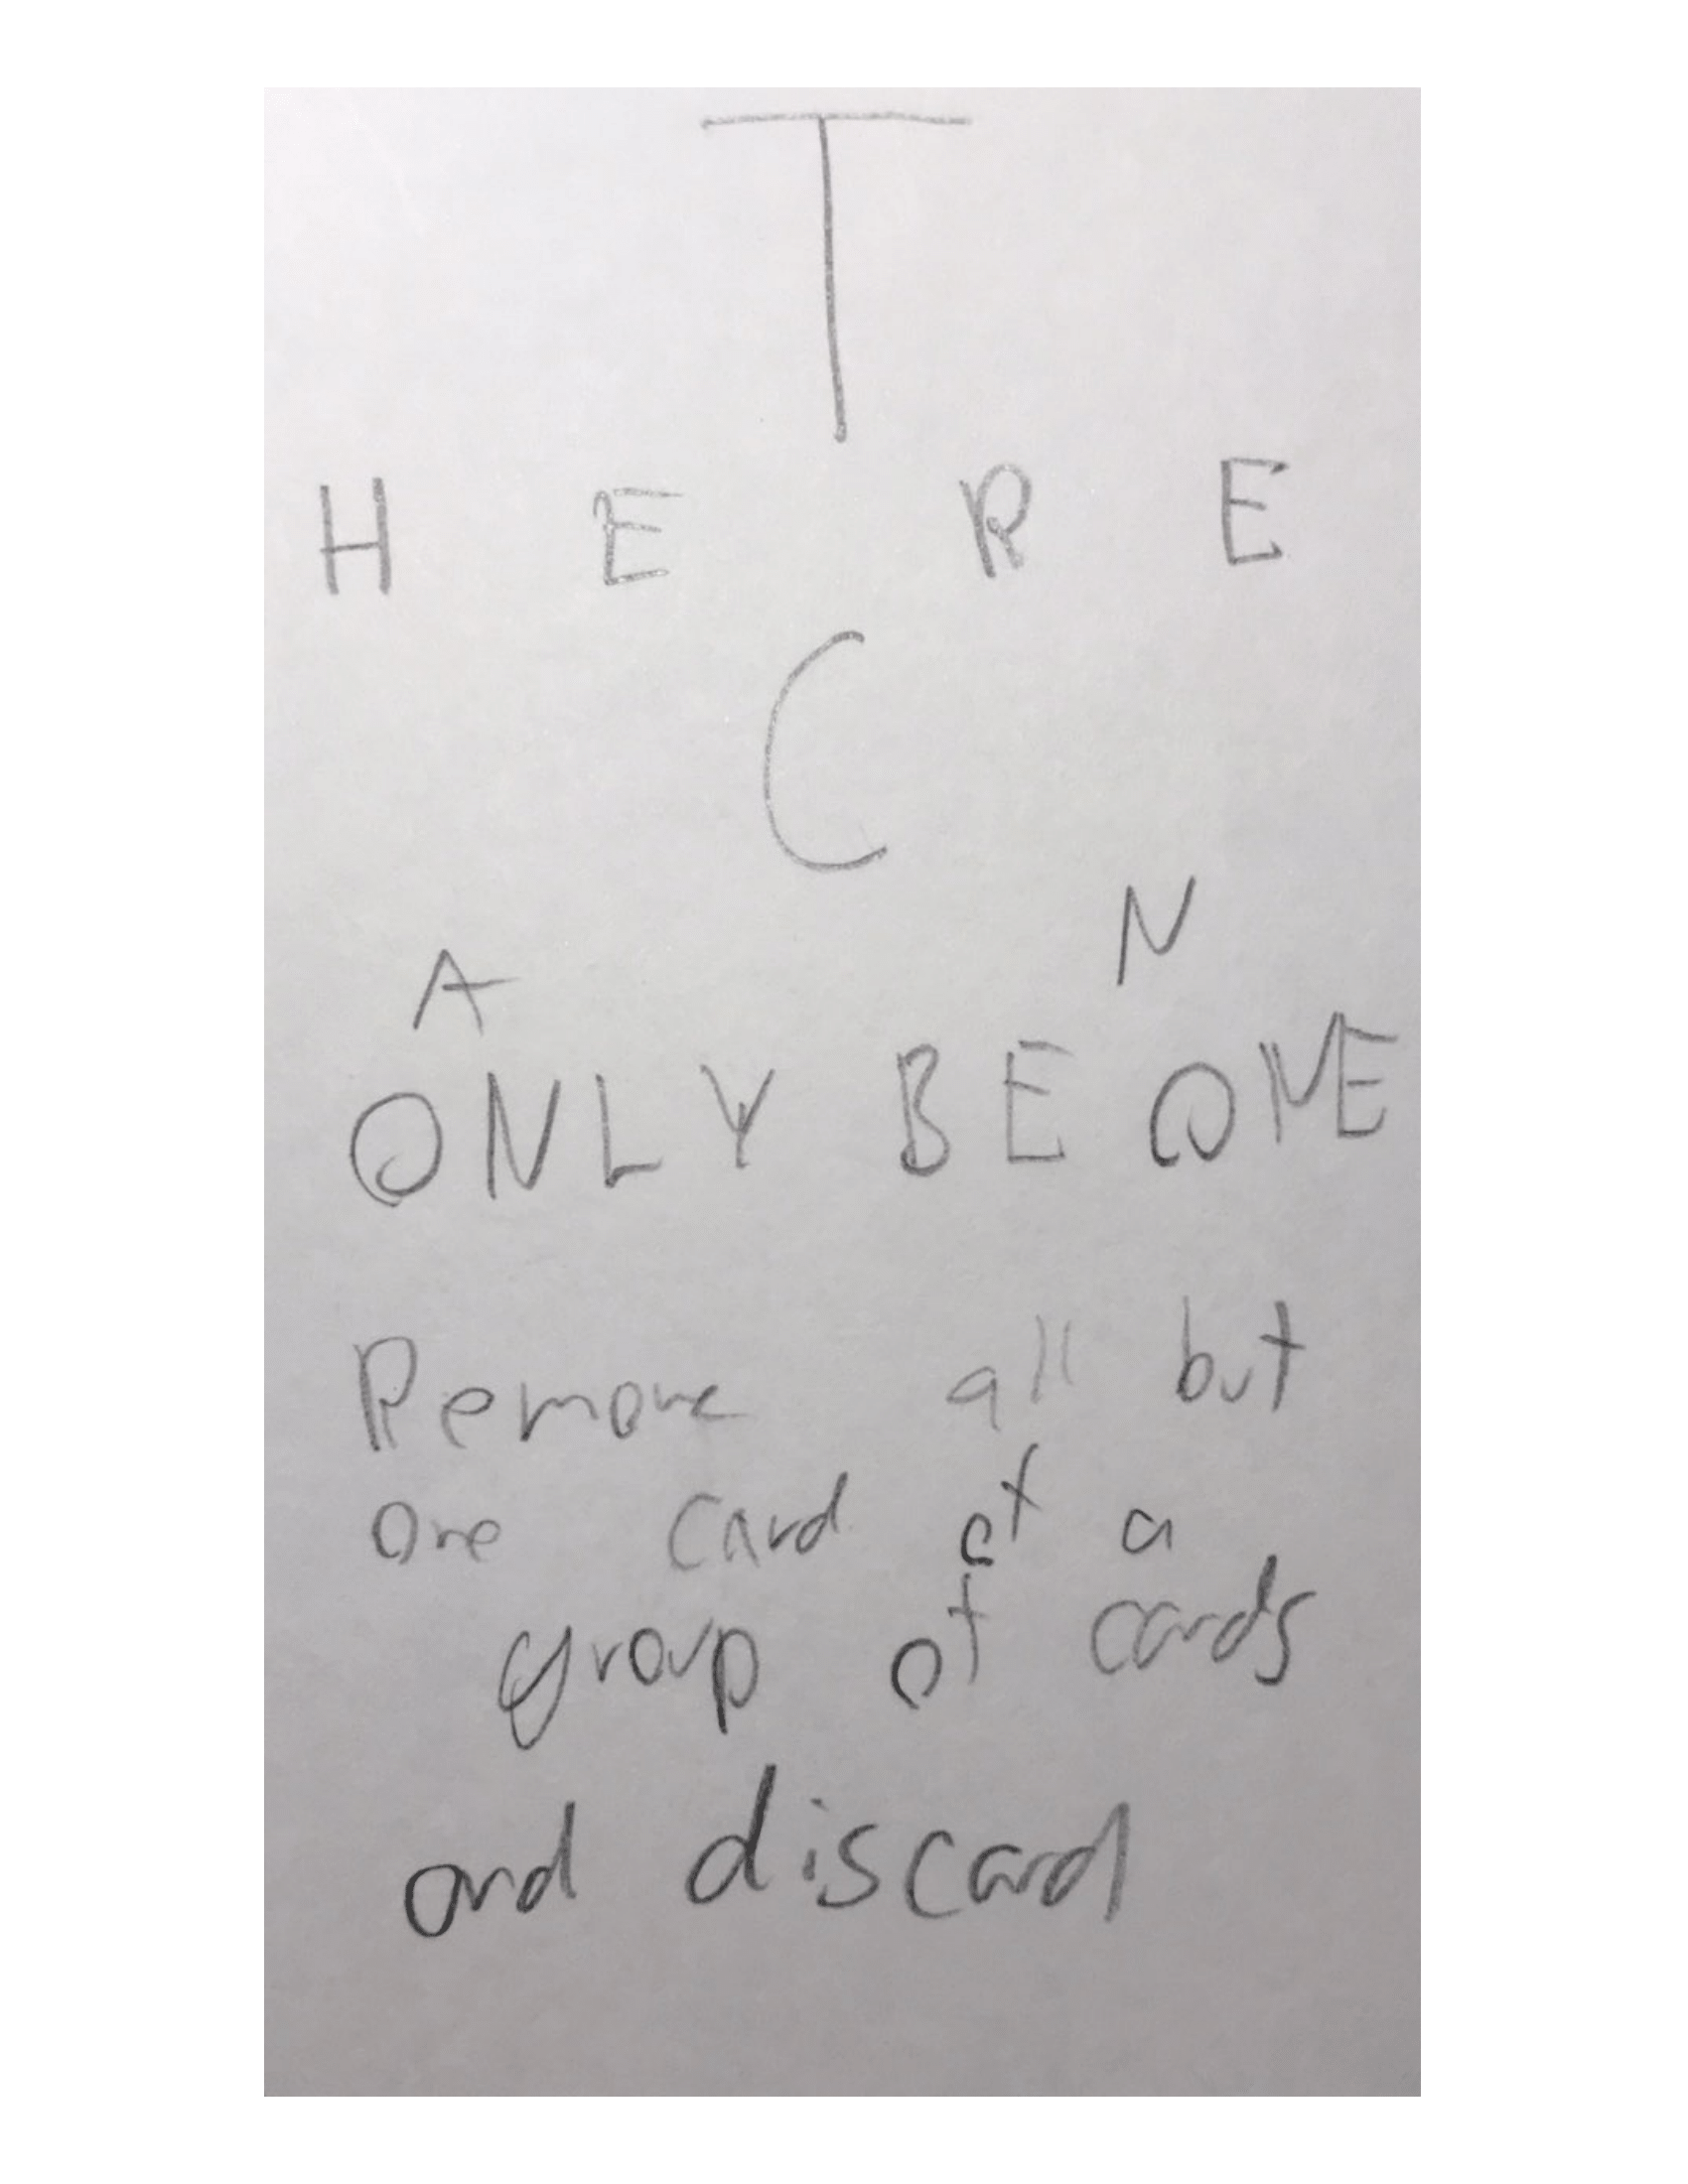 T
H E R E
C
A N
ONLY BE ONE
Remove all but
one card of a
group of cards
and discard